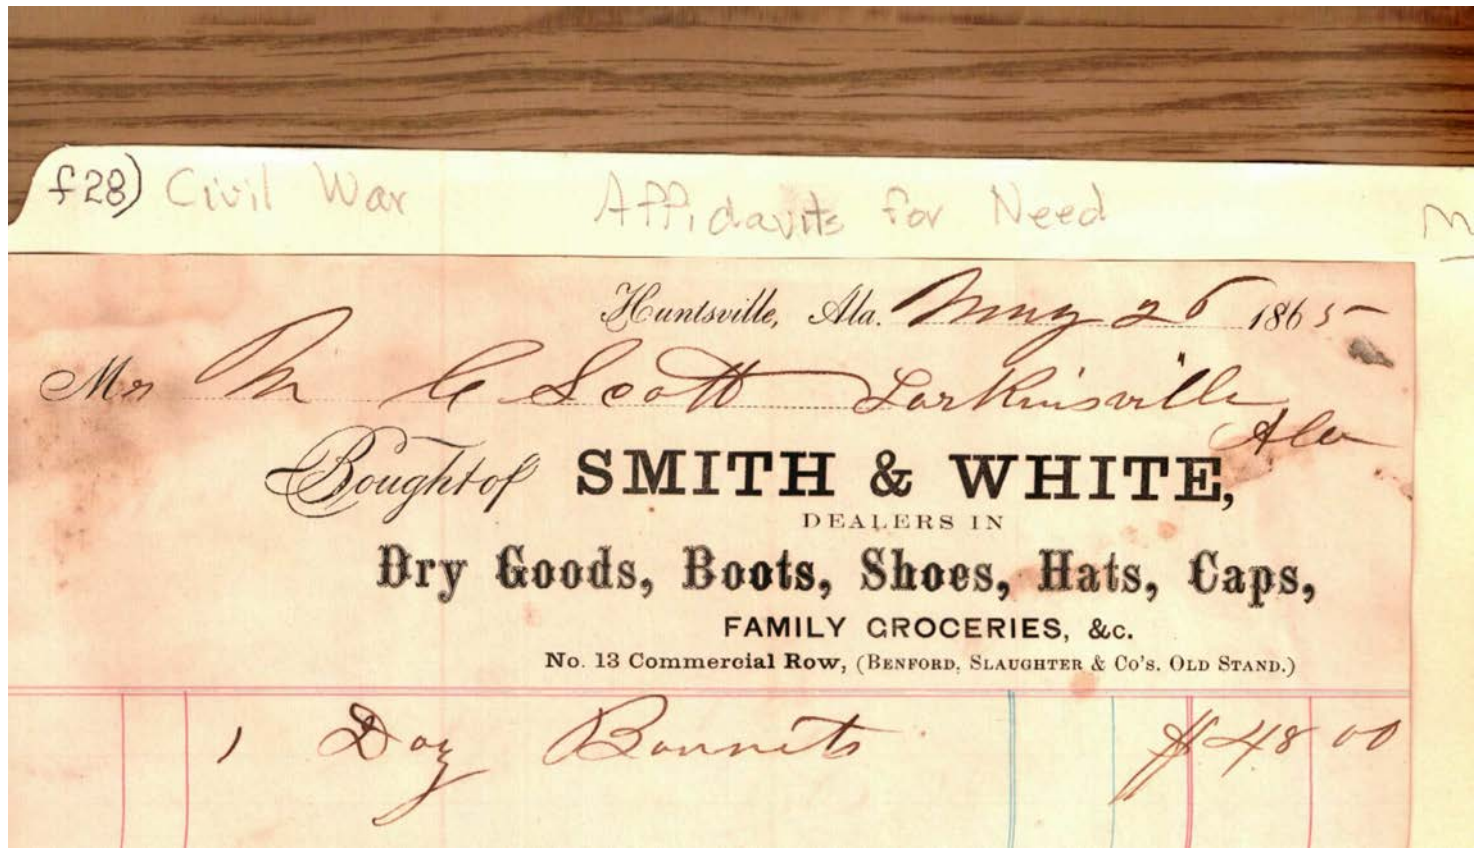 f28) Civil War Affidavits for Need M
Huntsville, Ala. May 26 1865
Mr M C Scott Larkinsville
Ala
Bought of SMITH & WHITE,
DEALERS IN
Dry Goods, Boots, Shoes, Hats, Caps,
FAMILY GROCERIES, &c.
No. 13 Commercial Row, (BENFORD, SLAUGHTER & CO'S. OLD STAND.)
1 Doz Bonnets $48 00